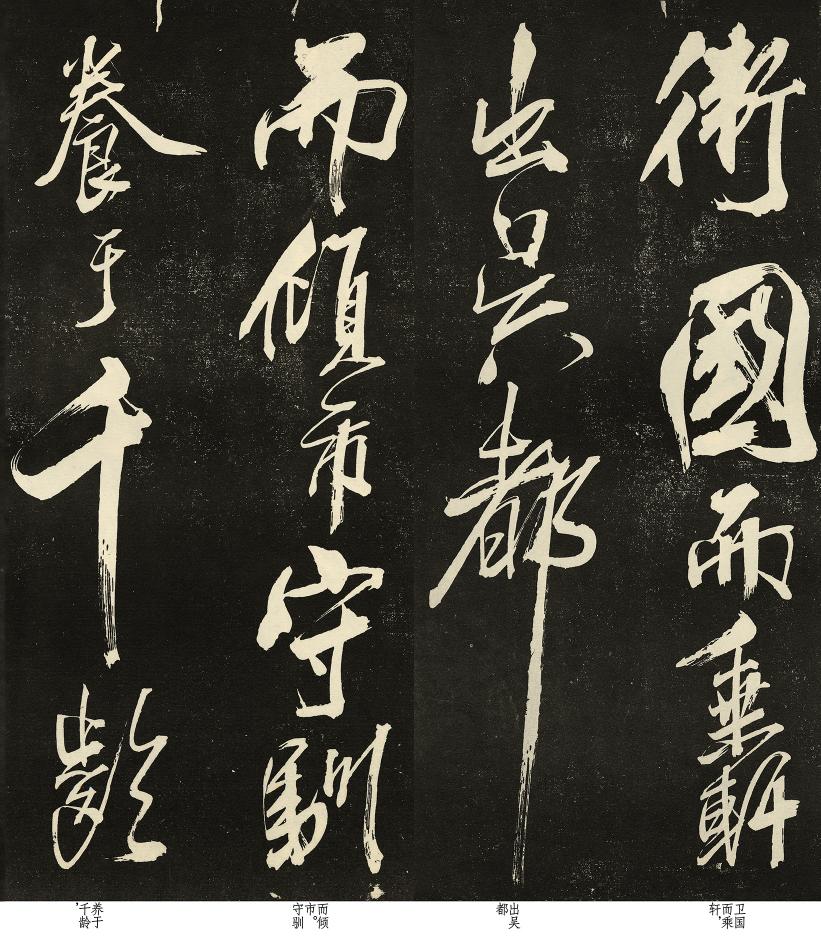 衛國而乗軒
出吴都
而傾市守馴
養于千齡
卫国
而乘
轩，
出吴
都
而倾
市。
守驯
养于
千龄，